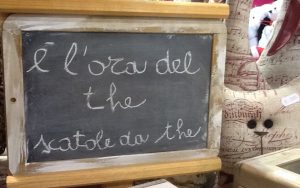 è l'ora del
the
scatole da the
Edinburgh